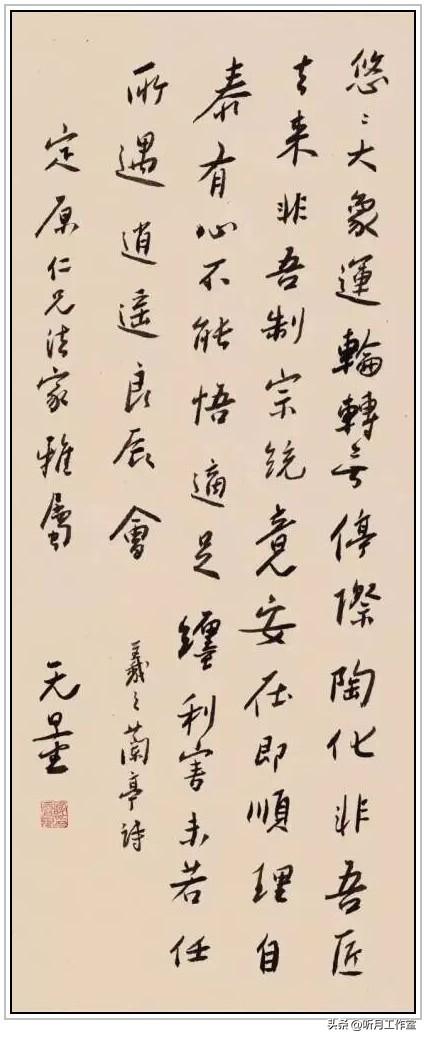 悠〻大象運輪轉無停際陶化非吾匠
去来非吾制宗统竟安在即順理自
泰有心不能悟適足纏利害未若任
所遇逍遥良辰會
羲之蘭亭詩
定原仁兄法家雅屬
无量
头条@听月工作室